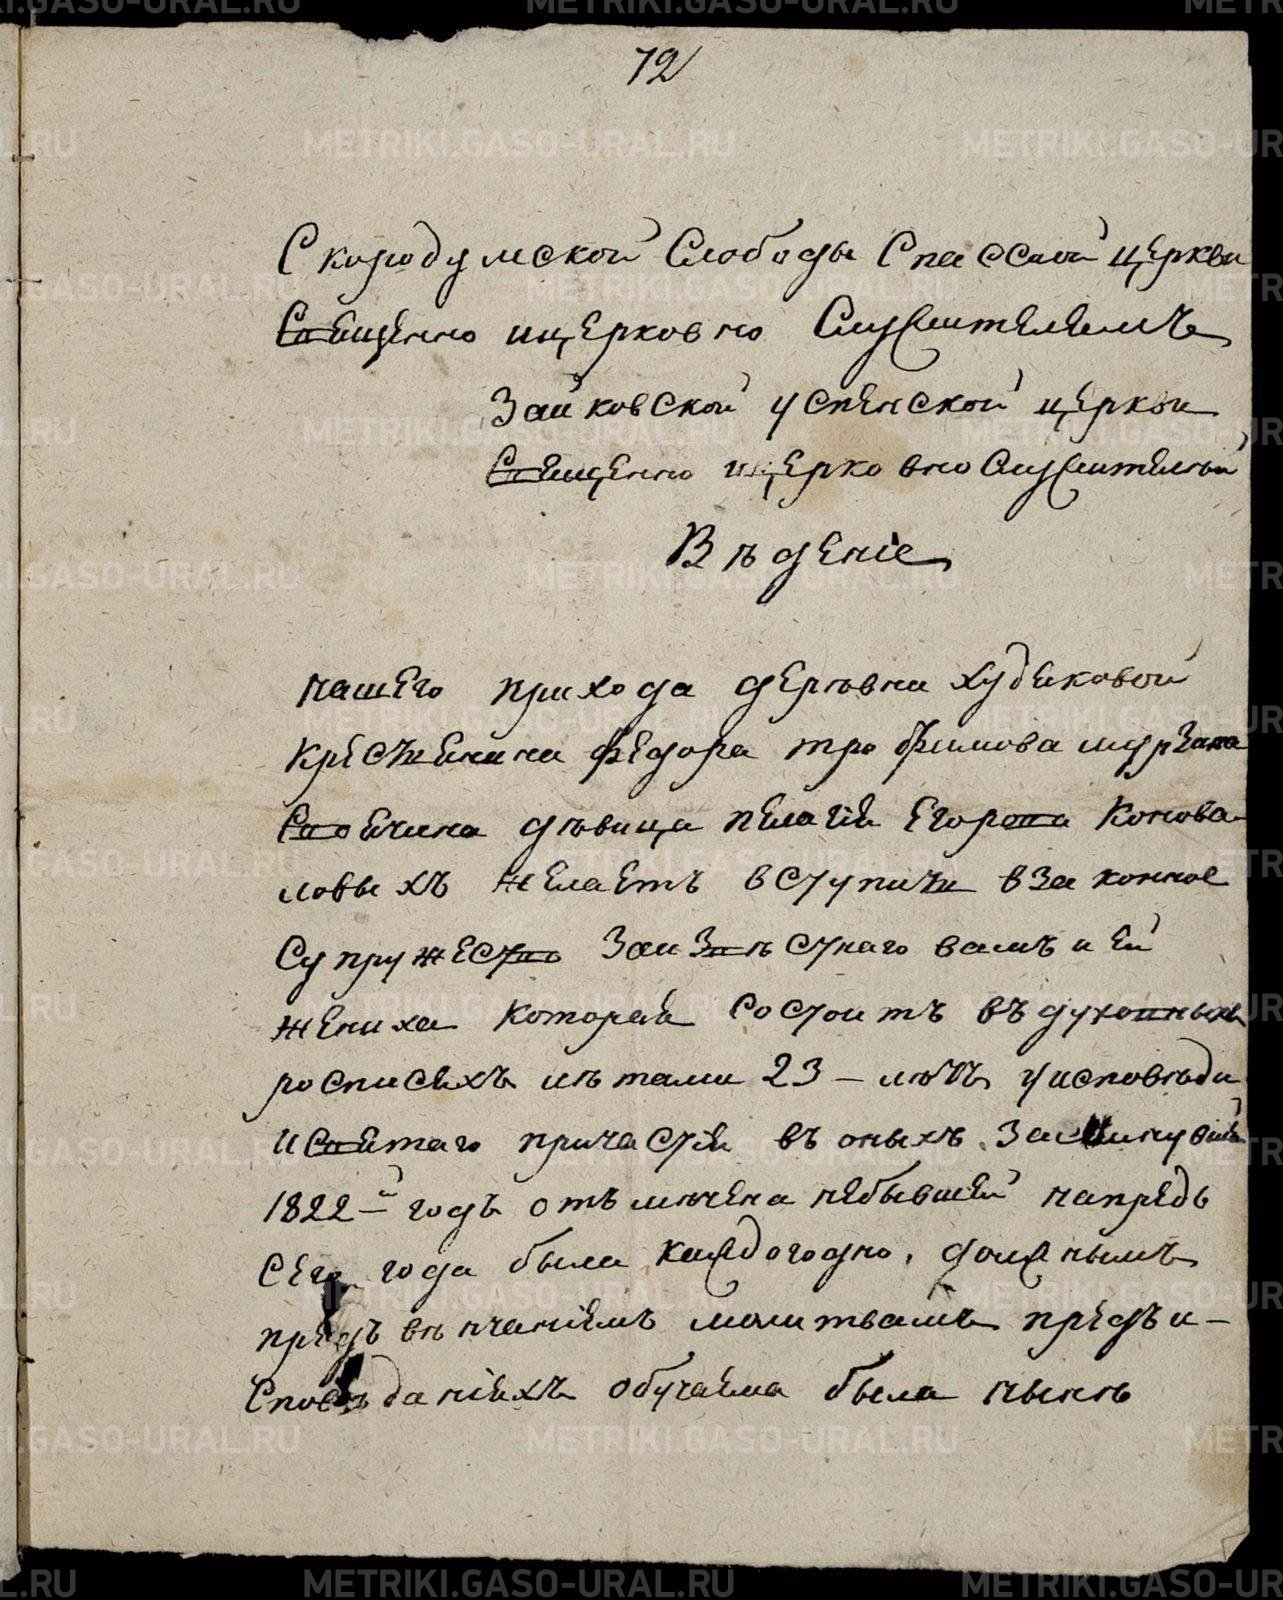 72
Скородумской Слободы Спасской церкви
Священно ицерковно Служителемъ
Зайковской успенской церкви
Священно ицерковно Служителей
Вѣденіе
нашего прихода деревни худяковой
крестьянина федора трофимова мурзина
Своячина девица пелагія Егорова Конова-
ловыхъ желаетъ вступить взаконное
Супружество Заизвѣстнаго вамъ и ей
жениха которая состоитъ въ духовныхъ
росписяхъ лѣтами 23 - лѣтъ уисповѣди
исвятаго причастія въ оныхъ за минувшій
1822-й годъ отъмѣчена небывшей напредъ
Сего года была каждогодно, должнымъ
предъ вѣнчаніемъ молитвамъ предъ и-
Сповѣданіихъ обучаема была нынѣ
METRIKI.GASO-URAL.RU